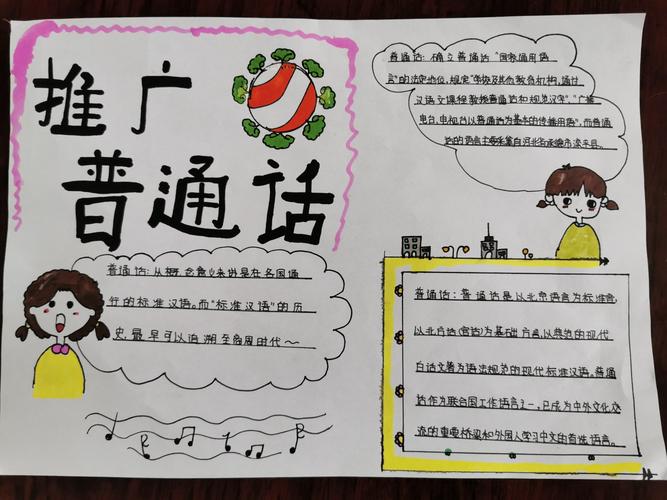 推广
普通话
普通话:从概念意义来讲是在各国通
行的标准汉语。而"标准汉语"的历
史,最早可以追溯至商周时代~
普通话:确立普通话"国家通用语
言"的法定地位,规定"学校及其他教育机构,通过
汉语文课程教授普通话和规范汉字"."广播
电台,电视台以普通话为基本的传播用语",而普通
话的语音主要采集自河北省承德市滦平县。
普通话:普通话是以北京语言为标准音,
以北方话(官话)为基础方言,以典范的现代
白话文著为语法规范的现代标准汉语。普通
话作为联合国工作语言之一,已成为中外文化交
流的重要桥梁和外国人学习中文的首选语言。